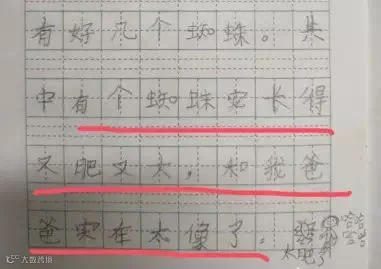 有好几个蜘蛛。其
中有个蜘蛛它长得
又肥又大，和我爸
爸实在太像了。
哈哈
哈哈
大数跨境